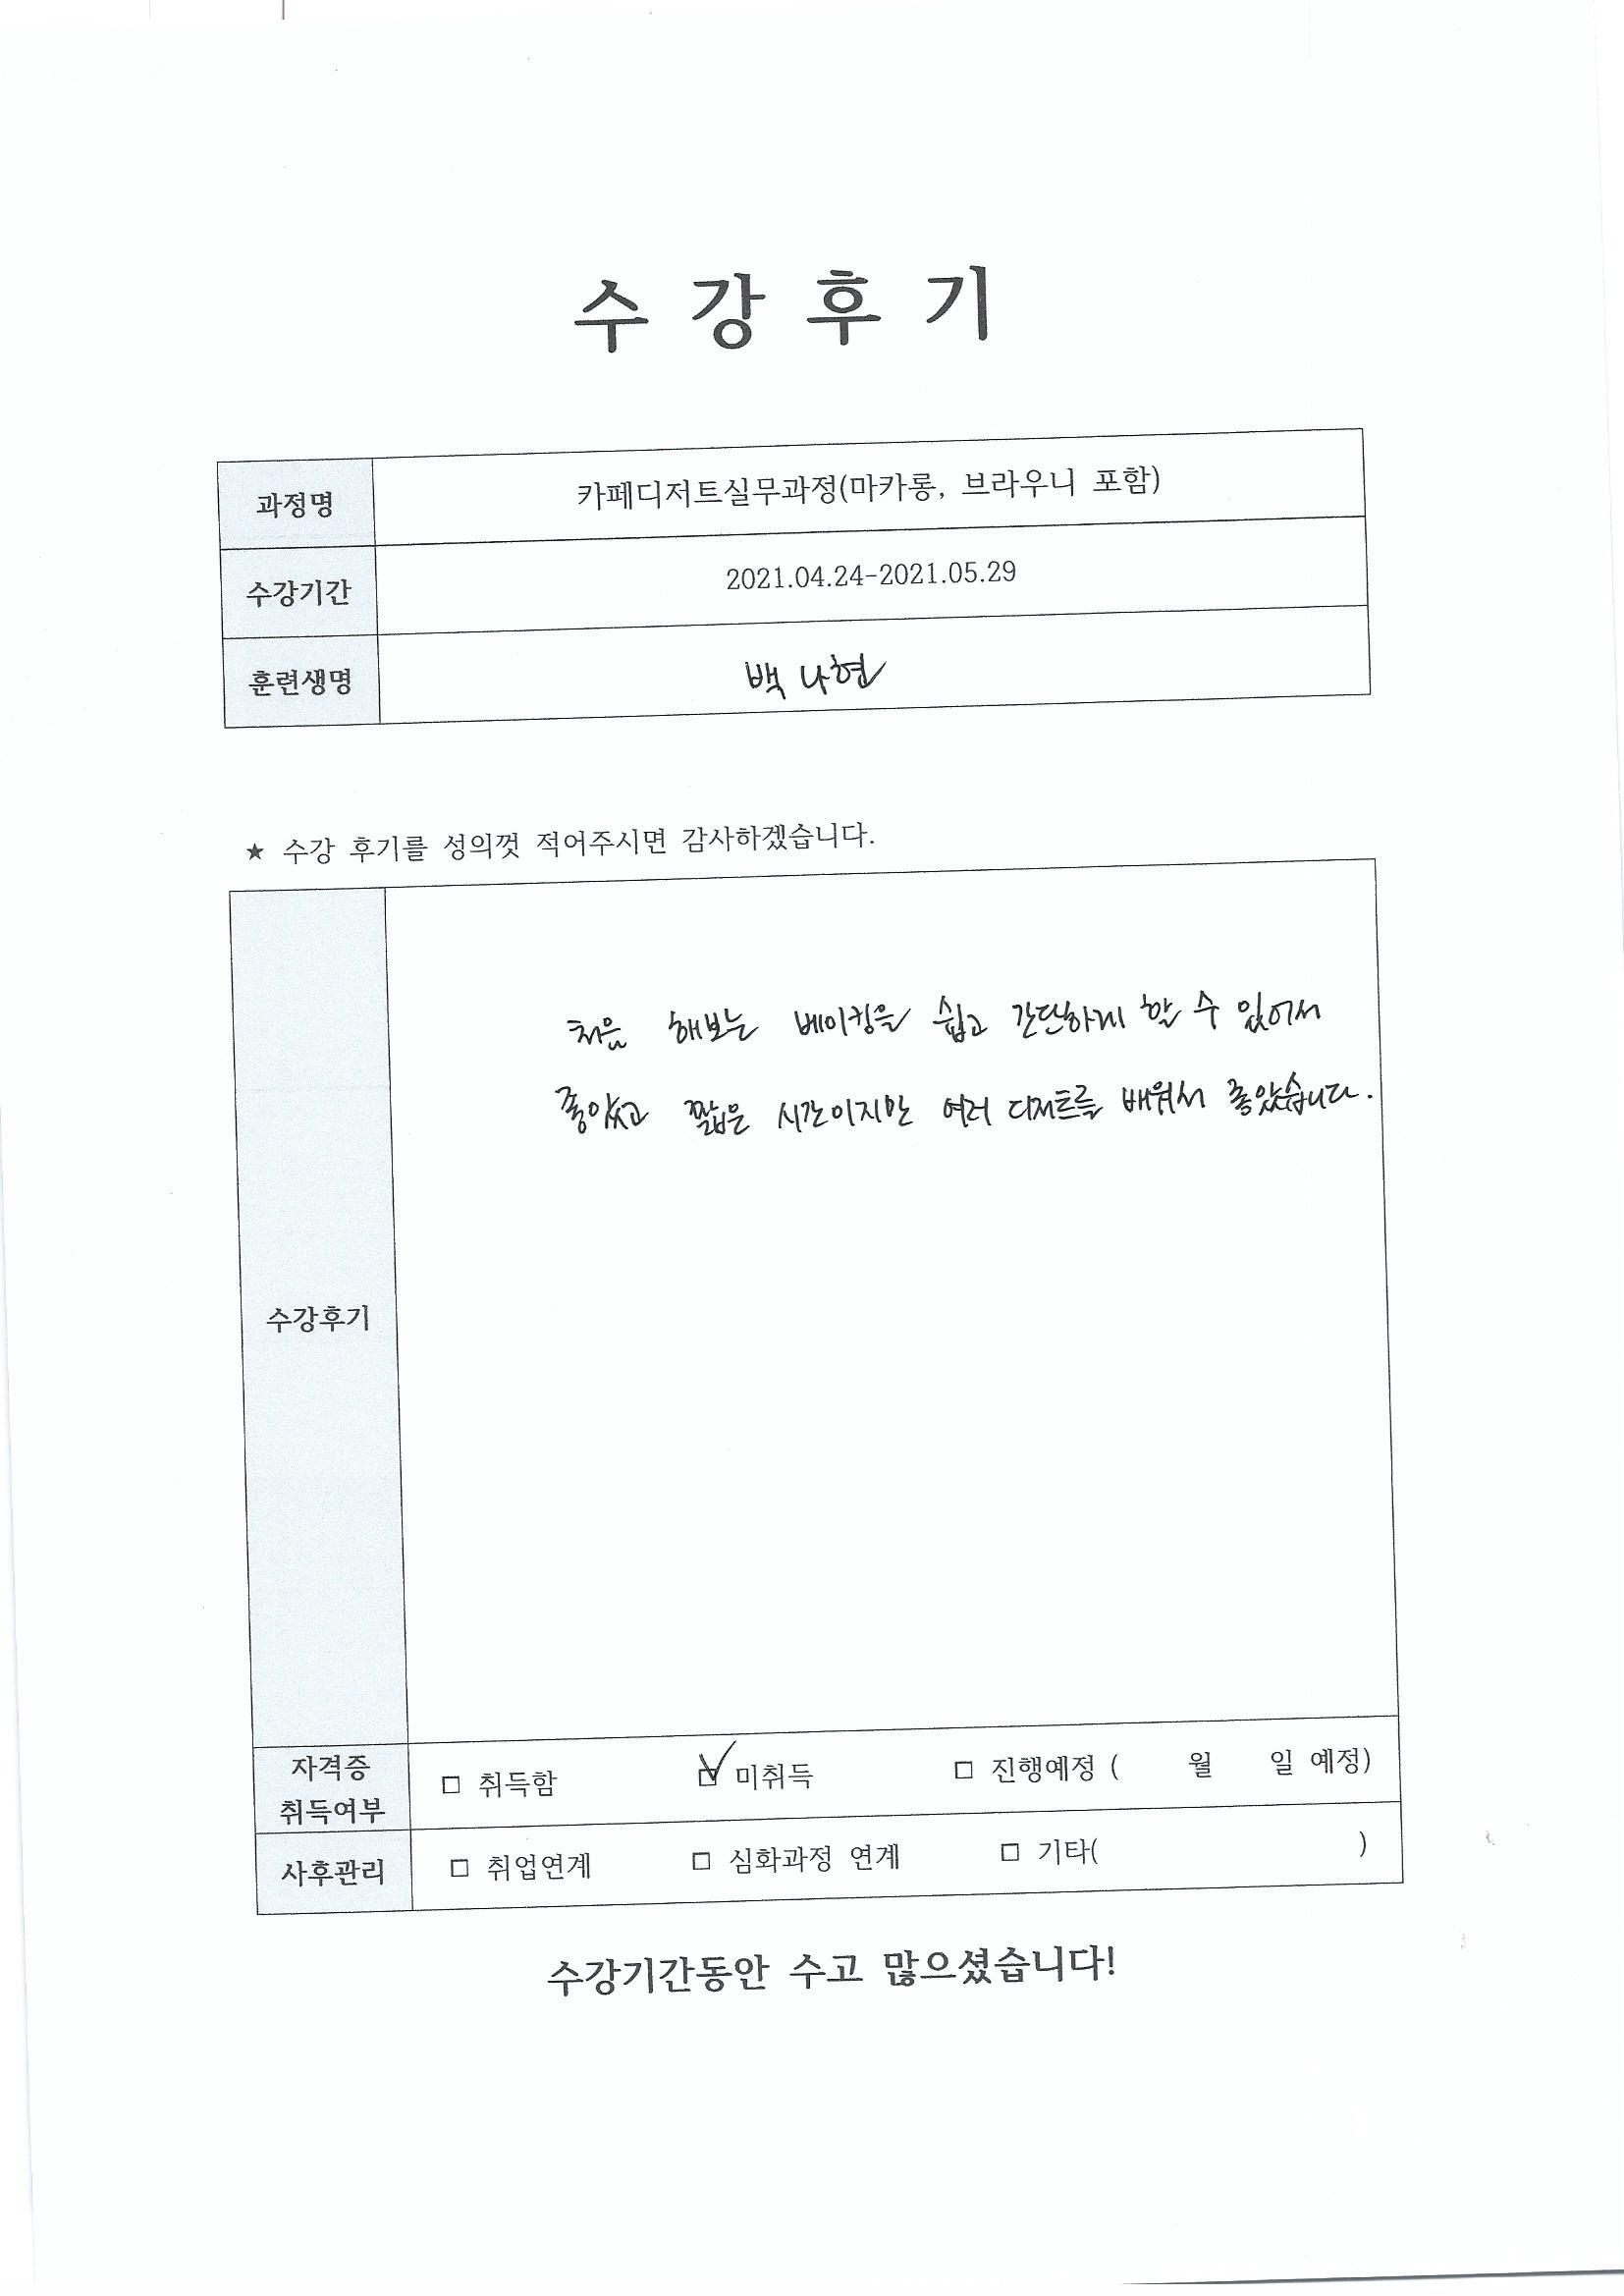 수 강 후 기
과정명 카페디저트실무과정(마카롱, 브라우니 포함)
수강기간 2021.04.24-2021.05.29
훈련생명 백 나현
★ 수강 후기를 성의껏 적어주시면 감사하겠습니다.
처음 해보는 베이킹을 쉽고 간단하게 할 수 있어서
좋았고 짧은 시간이지만 여러 디저트를 배워서 좋았습니다.
수강후기
자격증
취득여부
□ 취득함 ☑ 미취득 □ 진행예정 ( 월 일 예정)
사후관리 □ 취업연계 □ 심화과정 연계 □ 기타( )
수강기간동안 수고 많으셨습니다!